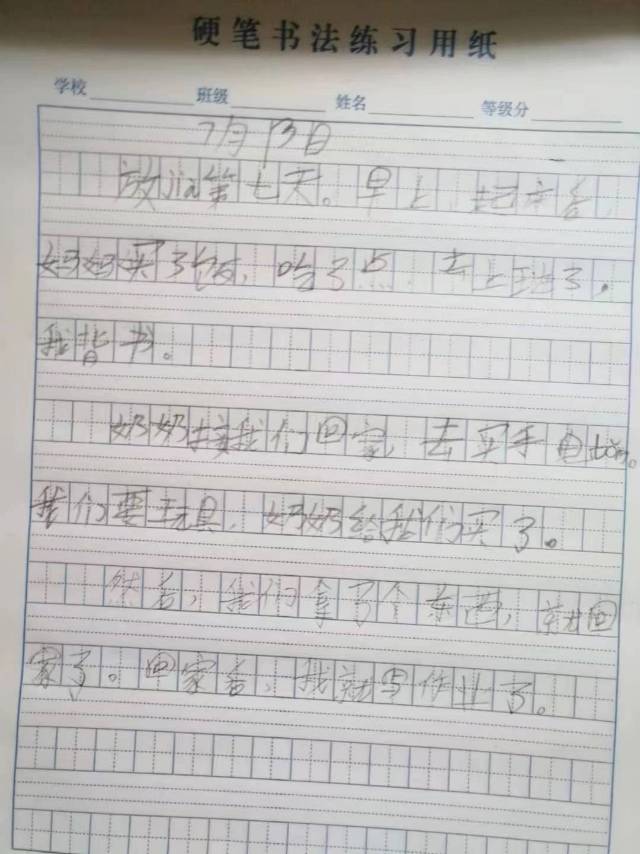 硬笔书法练习用纸
学校 班级 姓名 等级分
7月13日
放假第七天。早上起床后
妈妈买了饭,吃了点,去上班了。
我背书。
奶奶接我们回家,去买手电tǒng。
我们要玩具,奶奶给我们买了。
然后,我们拿了个东西,就回
家了。回家后,我就写作业了。